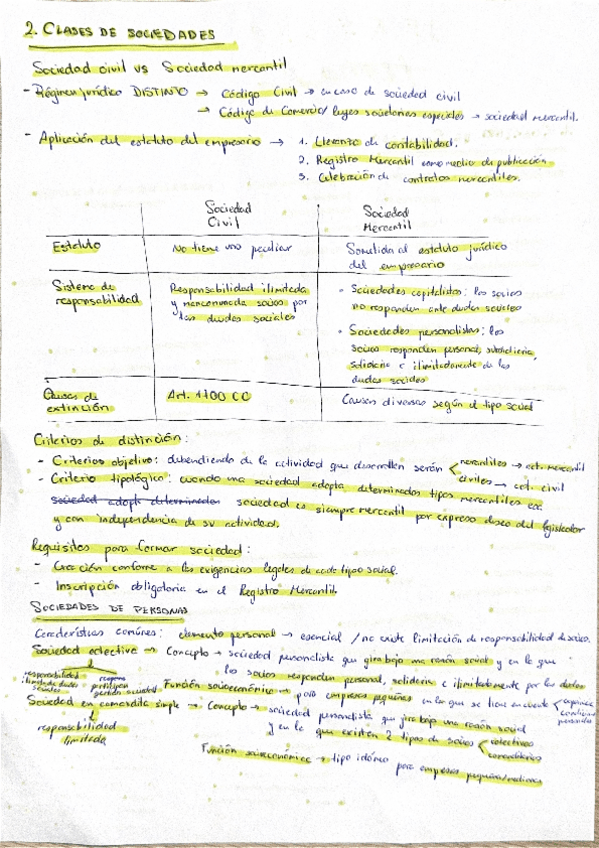 2. CLASES DE SOCIEDADES
Sociedad civil vs Sociedad mercantil
- Régimen jurídico DISTINTO → Código Civil → en caso de sociedad civil
→ Código de Comercio/ leyes societarias especiales → sociedad mercantil.
- Aplicación del estatuto del empresario → 1. Llevanza de contabilidad.
2. Registro Mercantil como medio de publicación
3. Celebración de contratos mercantiles.
Sociedad Civil
Sociedad Mercantil
Estatuto
No tiene uno peculiar
Sometida al estatuto jurídico
del empresario
Sistema de
responsabilidad
Responsabilidad ilimitada
y mancomunada socios por
las deudas sociales
- Sociedades capitalistas: los socios
no responden ante deudas sociales
- Sociedades personalistas: los
socios responden personal, subsidiaria,
solidaria e ilimitadamente de las
deudas sociales
Causas de
extinción
Art. 1700 CC
Causas diversas según el tipo social
Criterios de distinción:
- Criterios objetivo: dependiendo de la actividad que desarrollen serán mercantiles → act. mercantil
civiles → act. civil
- Criterio tipológico: cuando una sociedad adopta determinados tipos mercantiles esa
sociedad adopta determinados sociedad es siempre mercantil por expreso deseo del legislador
y con independencia de su actividad.
Requisitos para formar sociedad:
- Creación conforme a las exigencias legales de cada tipo social.
- Inscripción obligatoria en el Registro Mercantil.
SOCIEDADES DE PERSONAS
Características comunes: elemento personal → esencial / no existe limitación de responsabilidad de socios.
Sociedad colectiva → Concepto → sociedad personalista que gira bajo una razón social y en la que
los socios responden personal, solidaria e ilimitadamente por las deudas
responsabilidad
ilimitada deudas
sociales
Función socioeconómica → para empresas pequeñas en las que se tiene en cuenta
personales
Sociedad en comandita simple → Concepto → sociedad personalista que gira bajo una razón social
y en la que existen 2 tipos de socios colectivos
comanditarios
responsabilidad
limitada
Función socioeconómica → tipo idóneo para empresas pequeñas/medianas